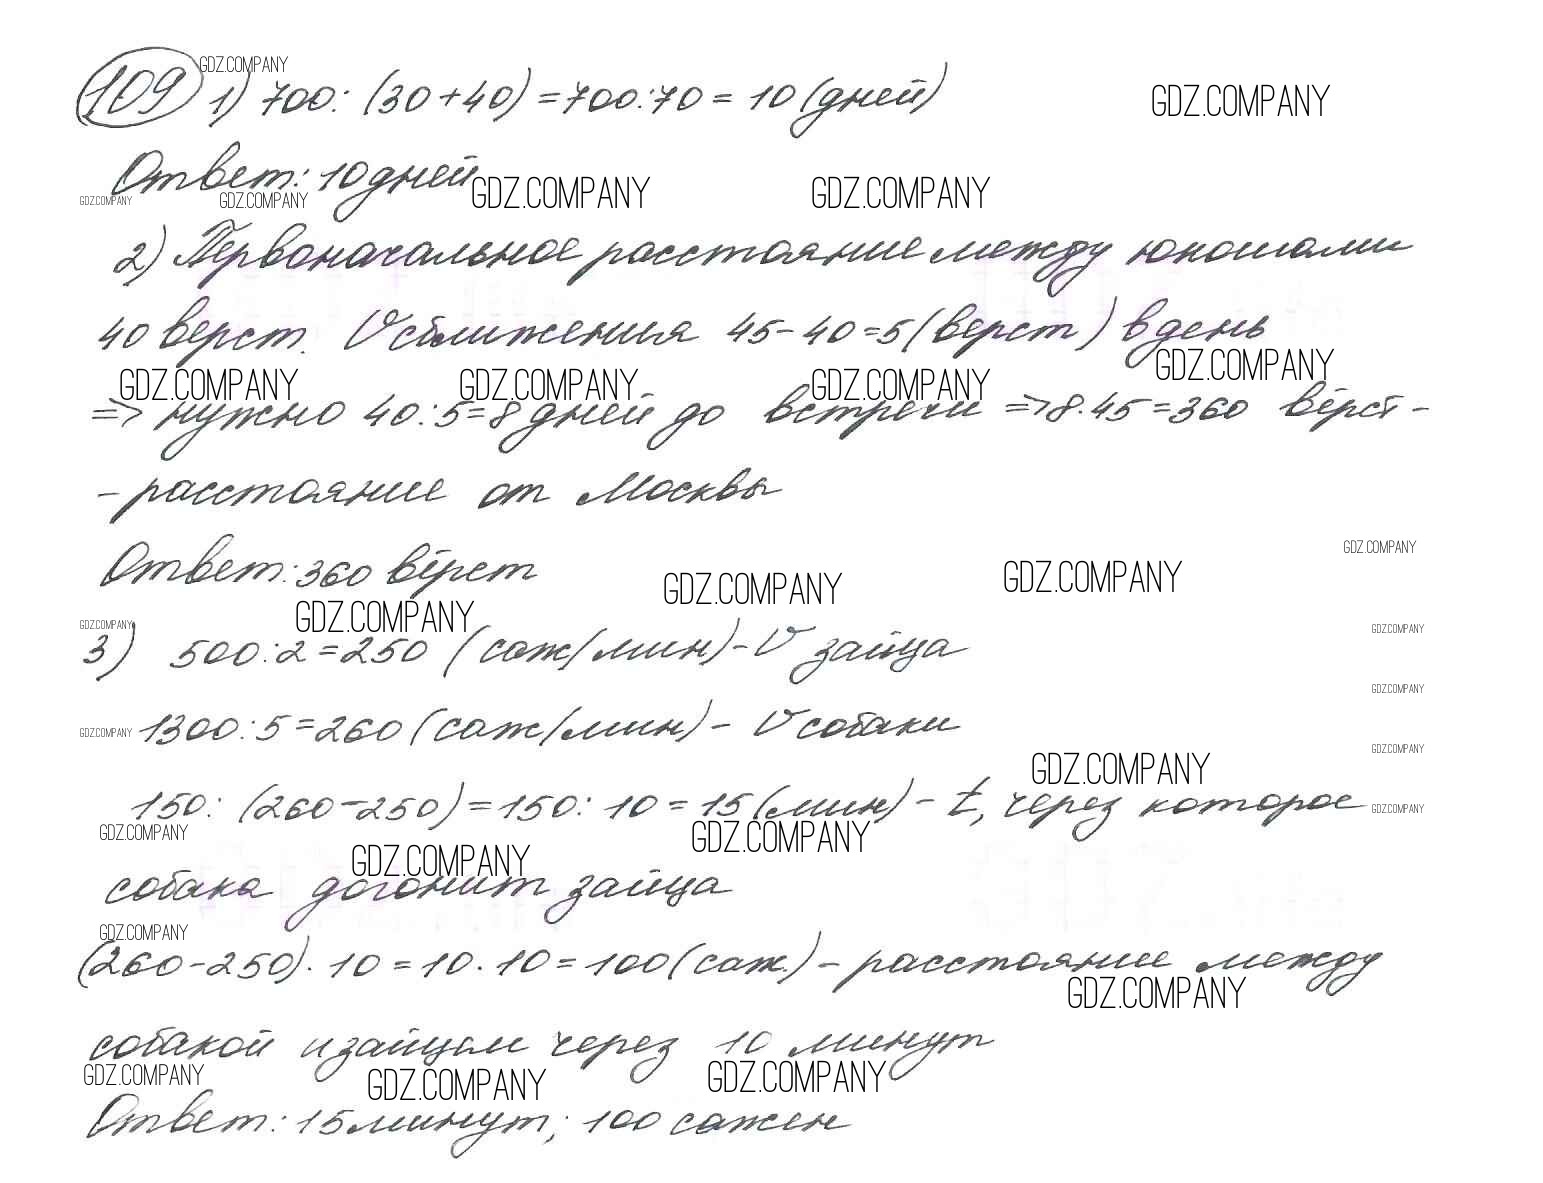 GDZ.COMPANY
109 1) 700: (30+40) = 700:70 = 10 (дней)
GDZ.COMPANY
Ответ: 10 дней
GDZ.COMPANY GDZ.COMPANY
GDZ.COMPANY GDZ.COMPANY
2) Первоначальное расстояние между юношами
40 верст. V сближения 45-40=5 (верст) в день
GDZ.COMPANY
GDZ.COMPANY GDZ.COMPANY GDZ.COMPANY
=> нужно 40:5=8 дней до встречи => 8·45=360 вёрст -
- расстояние от Москвы
GDZ.COMPANY
Ответ: 360 вёрст
GDZ.COMPANY GDZ.COMPANY
GDZ.COMPANY
GDZ.COMPANY GDZ.COMPANY
3) 500:2=250 (саж/мин)-V зайца
GDZ.COMPANY
1300:5=260 (саж/мин)- V собаки
GDZ.COMPANY GDZ.COMPANY
GDZ.COMPANY
150: (260-250) = 150: 10 = 15 (мин) - t, через которое
GDZ.COMPANY
GDZ.COMPANY GDZ.COMPANY
GDZ.COMPANY
собака догонит зайца
GDZ.COMPANY
(260-250)·10=10·10=100 (саж.) - расстояние между
GDZ.COMPANY
собакой и зайцем через 10 минут
GDZ.COMPANY GDZ.COMPANY GDZ.COMPANY
Ответ: 15 минут; 100 сажен